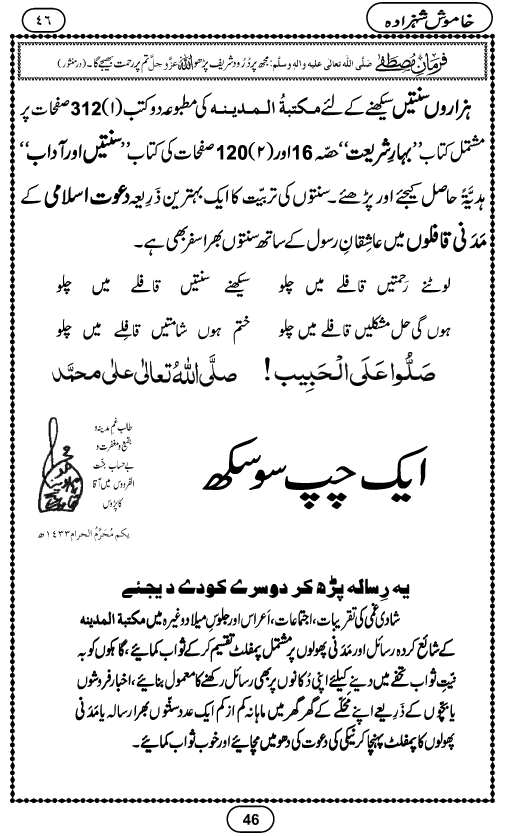 خاموش شہزادہ
٤٦
فرمانِ مصطفےٰ صلَّی اللہ تعالٰی علیہ والہٖ وسلَّم: مجھ پر دُرُود شریف پڑھو اللہ عَزَّوَجَلَّ تم پر رحمت بھیجے گا۔ (دُرِّمنثور)
ہزاروں سنّتیں سیکھنے کے لئے مکتبۃُ المدینہ کی مطبوعہ دو کتب (۱) 312 صفحات پر
مشتمل کتاب ’’بہارِ شریعت‘‘ حصّہ 16 اور (۲) 120 صفحات کی کتاب ’’سنتیں اور آداب‘‘
ہدِیَّۃً حاصل کیجئے اور پڑھئے۔ سنتوں کی تربیّت کا ایک بہترین ذَرِیعہ دعوتِ اسلامی کے
مَدَنی قافلوں میں عاشقانِ رسول کے ساتھ سنتوں بھرا سفر بھی ہے۔
لوٹنے رَحمتیں قافلے میں چلو سیکھنے سنتیں قافلے میں چلو
ہوں گی حل مشکلیں قافلے میں چلو ختم ہوں شامتیں قافِلے میں چلو
صَلُّوا عَلَی الْحَبِیب! صلَّی اللہُ تعالٰی علٰی محمَّد
ایک چپ سو سکھ
طالبِ غمِ مدینہ و
بقیع و مغفرت و
بے حساب جنّت
الفردوس میں آقا
کا پڑوس
یکم مُحَرَّمُ الحرام ۱٤۳۳ھ
یہ رِسالہ پڑھ کر دوسرے کو دے دیجئے
شادی غمی کی تقریبات، اجتماعات، اَعراس اور جلوسِ میلاد وغیرہ میں مکتبۃ المدینہ
کے شائع کردہ رسائل اور مَدَنی پھولوں پر مشتمل پمفلٹ تقسیم کرکے ثواب کمائیے، گاہکوں کو بہ
نیّتِ ثواب تحفے میں دینے کیلئے اپنی دُکانوں پر بھی رسائل رکھنے کا معمول بنائیے، اخبار فروشوں
یا بچّوں کے ذَرِیعے اپنے محلّے کے گھر گھر میں ماہانہ کم از کم ایک عدد سنّتوں بھرا رسالہ یا مَدَنی
پھولوں کا پمفلٹ پہنچا کر نیکی کی دعوت کی دھومیں مچائیے اور خوب ثواب کمائیے۔
46